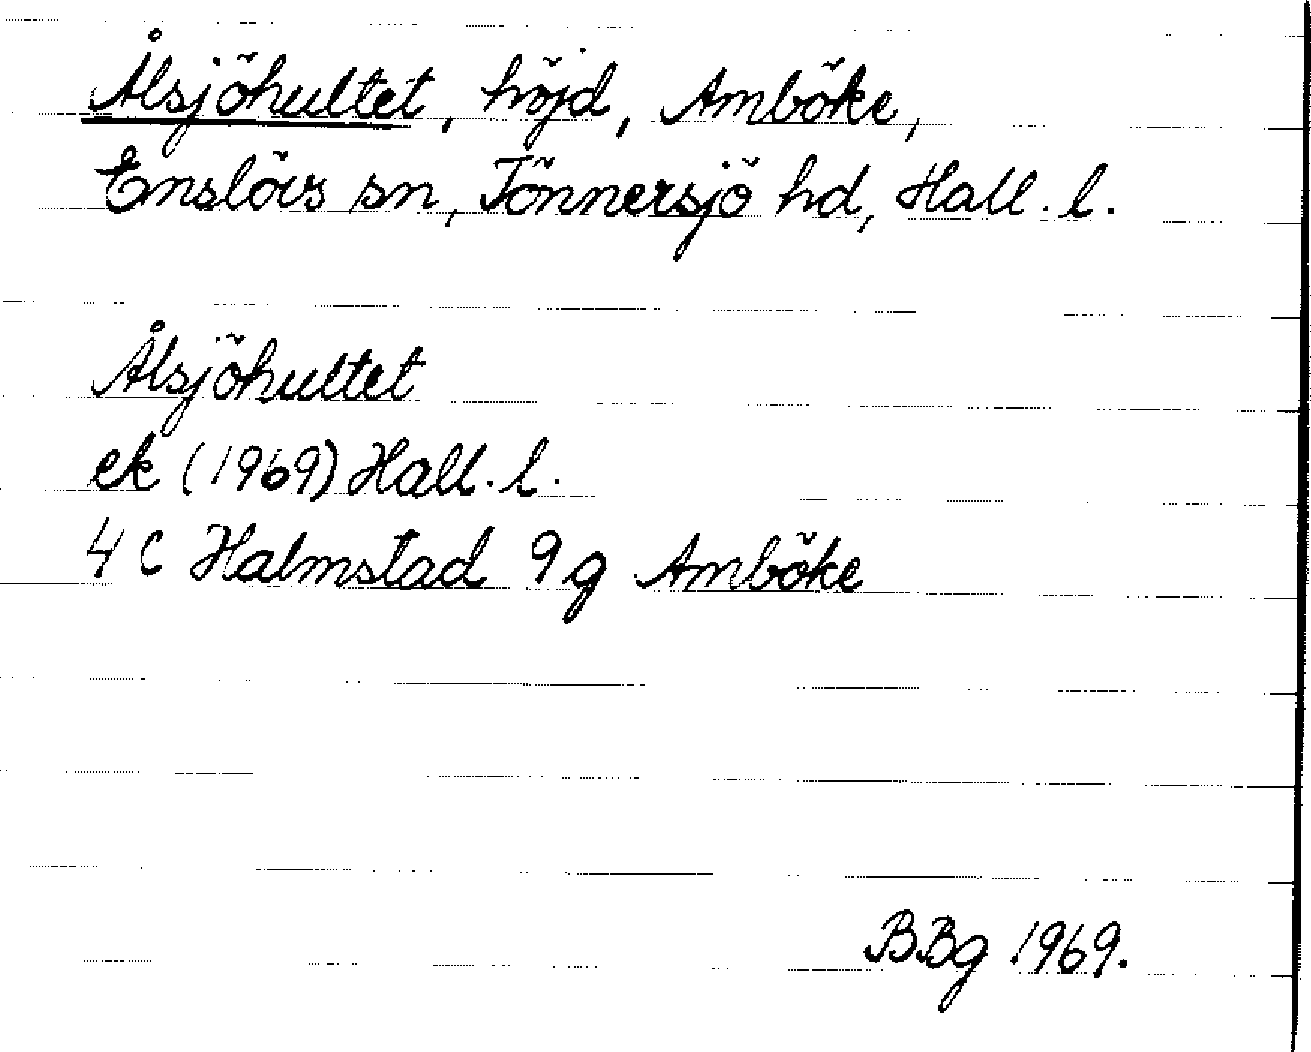 Ålsjöhultet, höjd, Amböke,
Enslövs sn, Tönnersjö hd, Hall. l.
Ålsjöhultet
ek (1969) Hall. l.
4 C Halmstad 9 g Amböke
BBg 1969.